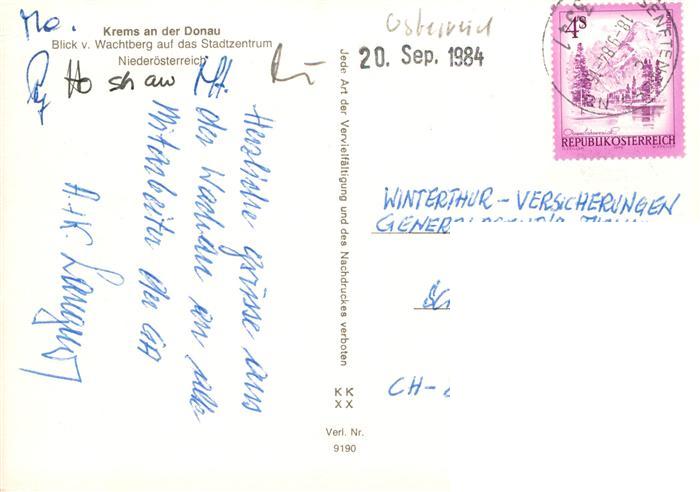 Mo.
Krems an der Donau
Blick v. Wachtberg auf das Stadtzentrum
Niederösterreich
Österreich
20. Sep. 1984
Herzliche grüsse aus
der Wachau an alle
Mitarbeiter der GA
A.+K.
Jede Art der Vervielfältigung und des Nachdruckes verboten
KK
XX
Verl. Nr.
9190
4S
18.-9.84
REPUBLIK ÖSTERREICH
WINTERTHUR-VERSICHERUNGEN
CH-